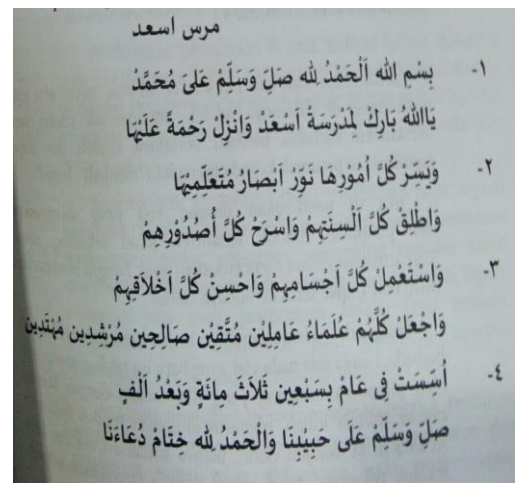 مرس اسعد
١- بِسْمِ الله اَلْحَمْدُ لِله صَلِّ وَسَلِّمْ عَلىَ مُحَمَّدْ
يَااللهُ بَارِكْ لِمَدْرَسَةْ اَسْعَدْ وَانْزِلْ رَحْمَةً عَلَيْهَا
٢- وَيَسِّرْ كُلَّ اُمُوْرِهَا نَوِّرْ اَبْصَارُ مُتَعَلِّمِيْهَا
وَاطْلِقْ كُلَّ اَلْسِنَتِهِمْ وَاسْرَحْ كُلَّ أُصُدُوْرِهِمْ
٣- وَاسْتَعْمِلْ كُلَّ اَجْسَامِهِمْ وَاحْسِنْ كُلَّ اَخْلَاقِهِمْ
وَاجْعَلْ كُلَّهُمْ عُلَمَاءُ عَامِلِيْن مُتَّقِيْن صَالِحِين مُرْشِدِين مُهْتَدِين
٤- أُسِّسَتْ فِى عَامْ بِسَبْعِين ثَلَاثَ مِائَةٍ وَبَعْدُ اَلْفٍ
صَلِّ وَسَلِّمْ عَلَى حَبِيْبِنَا وَالْحَمْدُ لِله خِتَامْ دُعَاءَنَا